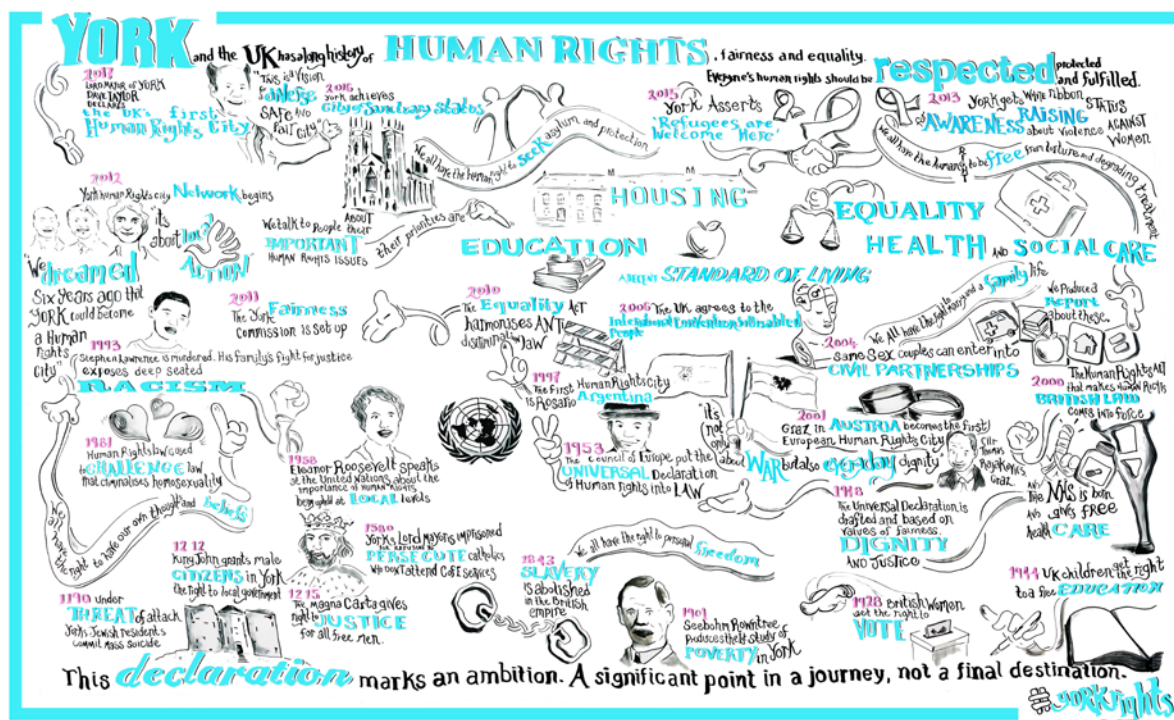 YORK and the UK has a long history of HUMAN RIGHTS, fairness and equality.
Everyone's human rights should be respected protected and fulfilled.
2017
LORD MAYOR of YORK
DAVE TAYLOR
DECLARES
the UK's first
Human Rights City
"This is a Vision
of a diverse
SAFE AND
Fair City"
2016
York achieves
City of Sanctuary Status
We all have the human right to seek asylum and protection
2015
York Asserts
'Refugees are
Welcome Here'
2013 YORK gets White ribbon STATUS
AWARENESS RAISING
about violence AGAINST
Women
We all have the human right to be free from torture and degrading treatment
2012
York human Rights city Network begins
it's
about local
ACTION"
We talk to People ABOUT their
IMPORTANT
HUMAN RIGHTS ISSUES
their priorities are
HOUSING
EDUCATION
EQUALITY
HEALTH AND SOCIAL CARE
A DECENT STANDARD OF LIVING
We all have the right to marry and a family life
We Produce a
REPORT
about these.
"We dreamed
Six years ago that
YORK could become
a Human
rights
city"
2011
The York Fairness
Commission is set up
2010
The Equality ACT
harmonises ANTi
discrimination law
2006 The UK agrees to the
International Convention on Disabled
People
2004
same sex couples can enter into
CIVIL PARTNERSHIPS
2000 The Human Rights Act
that makes Human Rights
BRITISH LAW
comes into force
1993
Stephen Lawrence is murdered. His family's fight for justice
exposes deep seated
RACISM
1997
The first Human Rights City
is Rosario Argentina
2001
Graz in AUSTRIA becomes the first
European Human Rights City
"it's
not
only
about WAR but also everyday dignity"
Cllr
Thomas
Rajakovics
Graz.
1981
Human Rights law used
to CHALLENGE law
that criminalises homosexuality
We all have the right to have our own thoughts and beliefs
1958
Eleanor Roosevelt speaks
at the United Nations about the
importance of HUMAN RIGHTS
being upheld at LOCAL levels
1953
The Council of Europe put the
UNIVERSAL Declaration
of Human rights into LAW
1948
The Universal Declaration is
drafted and based on
values of fairness,
DIGNITY
AND JUSTICE
AND
The NHS is born
AND gives free
health CARE
1212
King John grants male
CITIZENS in York
the right to local government
1580
York's Lord Mayor is imprisoned
PERSECUTE catholics
who don't attend C of E services
We all have the right to personal freedom
1190 under
THREAT of attack
York's Jewish residents
commit mass suicide
1215
The Magna Carta gives
right to JUSTICE
for all free men.
1843
SLAVERY
is abolished
in the British
empire
1901
Seebohm Rowntree
produces the 1st study of
POVERTY in York
1928 British Women
get the right to
VOTE
1944 UK children get the right
to a free EDUCATION
This declaration marks an ambition. A significant point in a journey, not a final destination.
#yorkrights